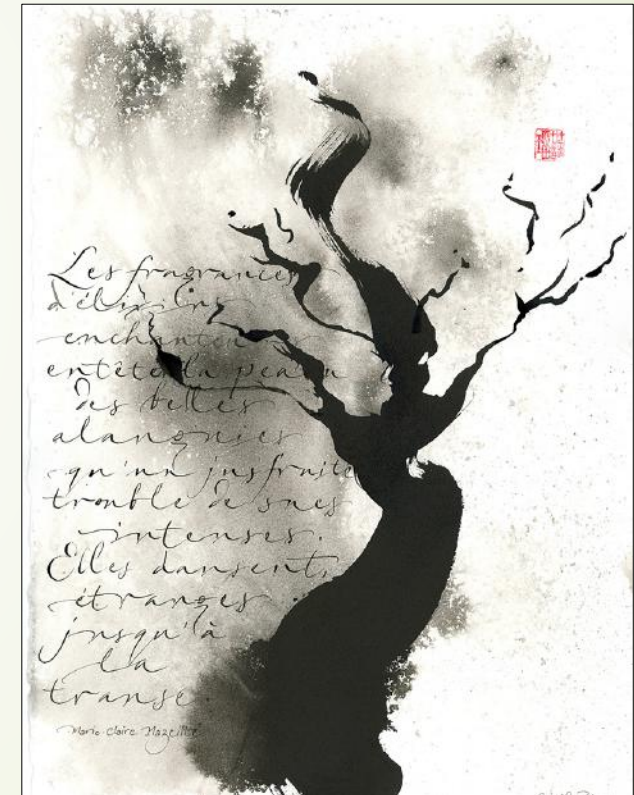 Les fragrances
d'élixirs
enchanteurs
entête la peau
des belles
alanguies
qu'un jus fruité
trouble de sues
intenses.
Elles dansent,
étranges
jusqu'à
la
transe.
Marie-Claire Mazeillé